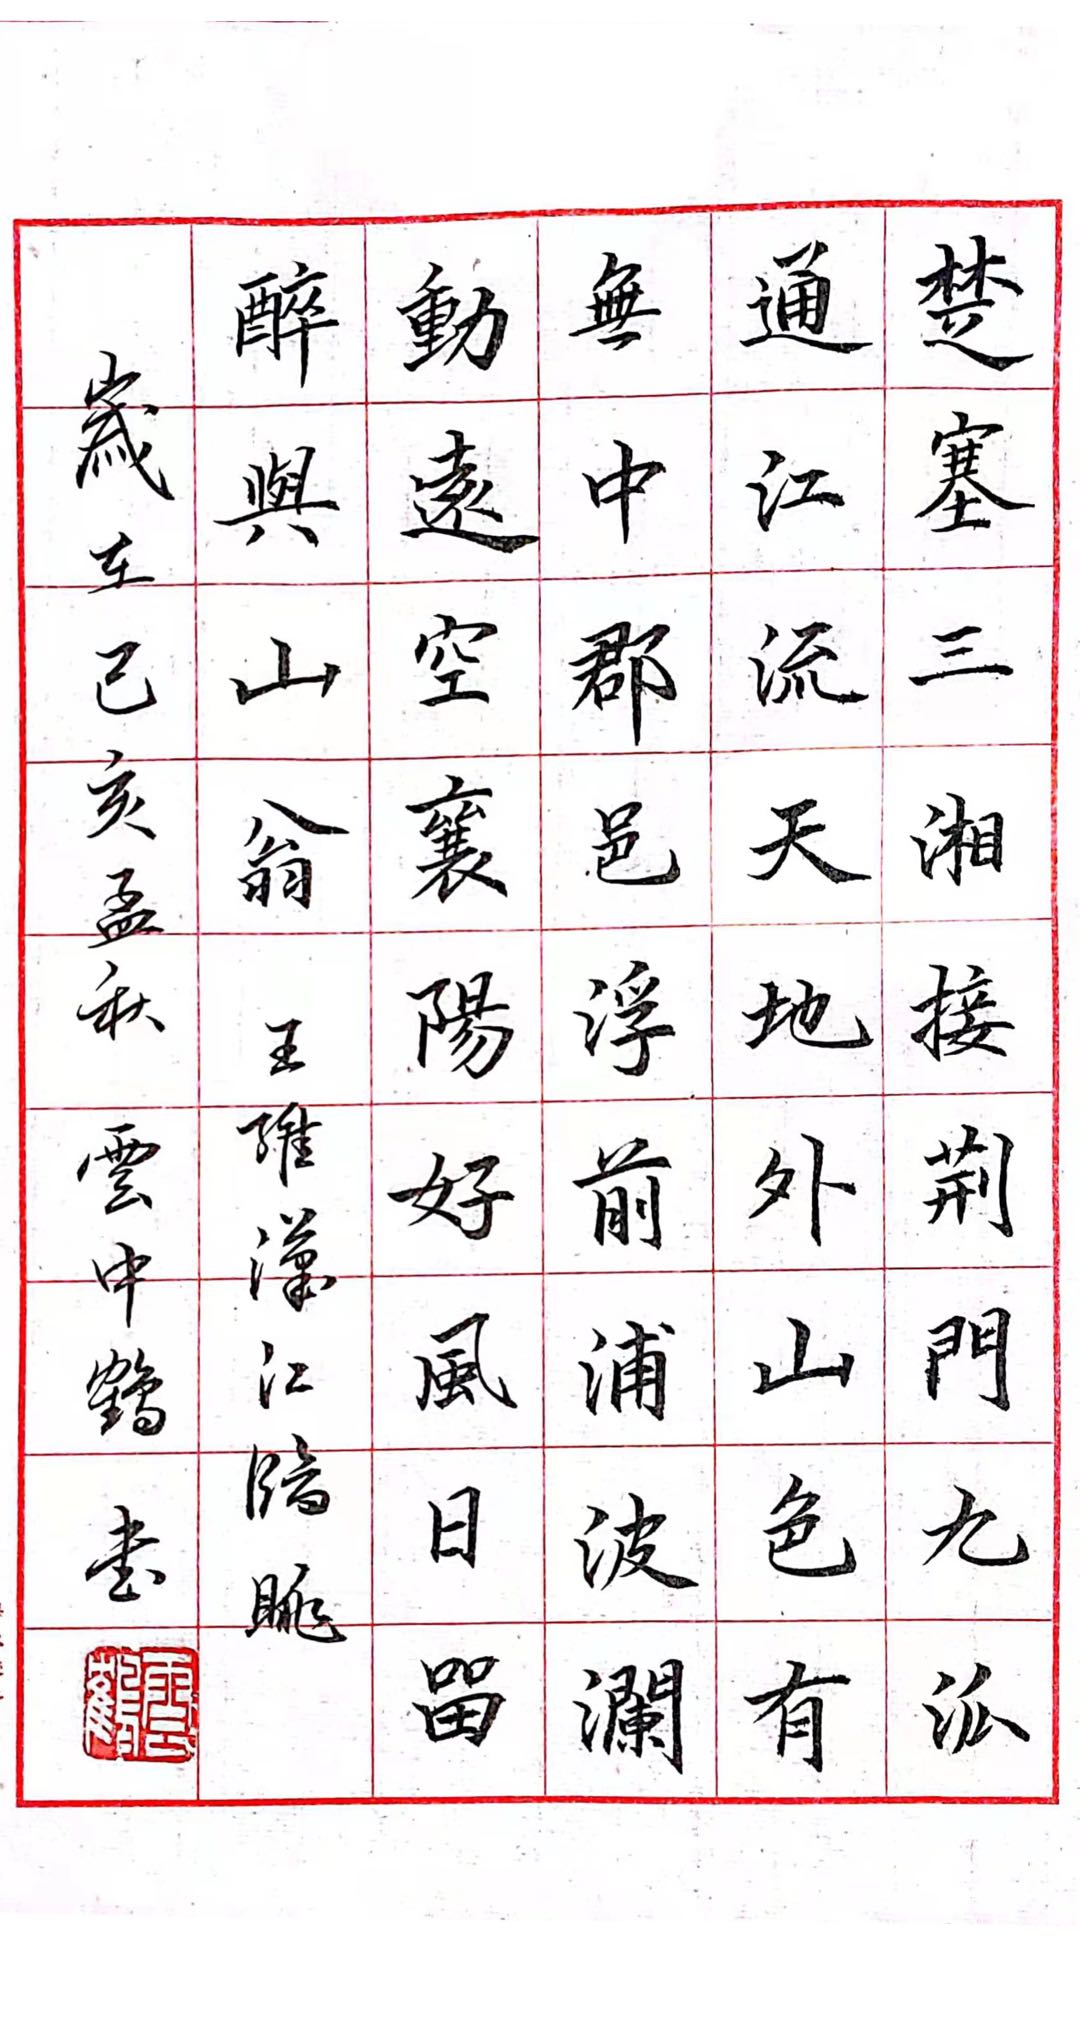 楚塞三湘接荆門九泒
通江流天地外山色有
無中郡邑浮前浦波瀾
動遠空襄陽好風日留
醉與山翁 王維漢江臨眺
歲在己亥孟秋 雲中鶴書